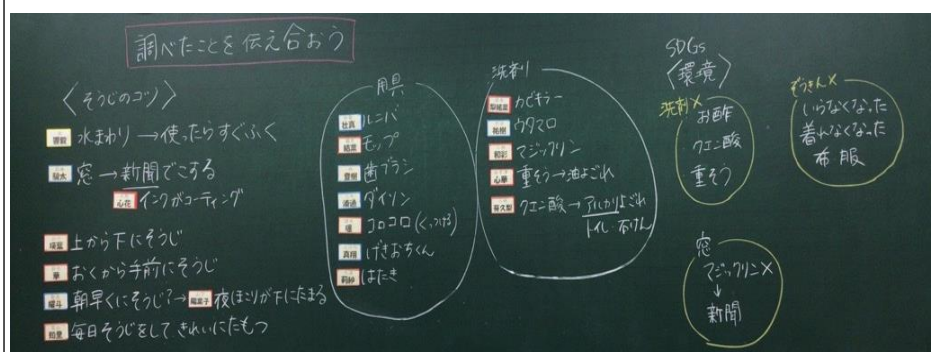 調べたことを伝え合おう
〈そうじのコツ〉
水まわり→使ったらすぐふく
窓→新聞でこする
心花 インクがコーティング
上から下にそうじ
華 おくから手前にそうじ
朝早くにそうじ?→夜ほこりが下にたまる
毎日そうじをしてきれいにたもつ
用具
ルンバ
モップ
歯ブラシ
ダイソン
コロコロ(くっつける)
げきおちくん
はたき
洗剤
カビキラー
ウタマロ
マジックリン
心華 重そう→油よごれ
クエン酸→アルカリよごれ
トイレ 石けん
SDGs
〈環境〉
洗剤×
お酢
クエン酸
重そう
ぞうきん×
いらなくなった
着れなくなった
布 服
窓
マジックリン×
↓
新聞